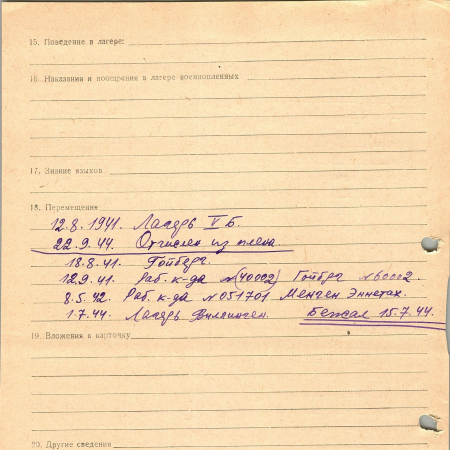 15. Поведение в лагере:
16. Наказания и поощрения в лагере военнопленных
17. Знание языков
18. Перемещения
12.8.1941. Лагерь V Б.
22.9.44. Отчислен из плена.
18.8.41. Гойберг.
12.9.41. Раб. к-да №(40002) Гойберг №60002.
8.5.42. Раб. к-да №051701 Менген Эннетах.
1.7.44. Лагерь Филлинген. Бежал 15.7.44.
19. Вложения в карточку
20. Другие сведения